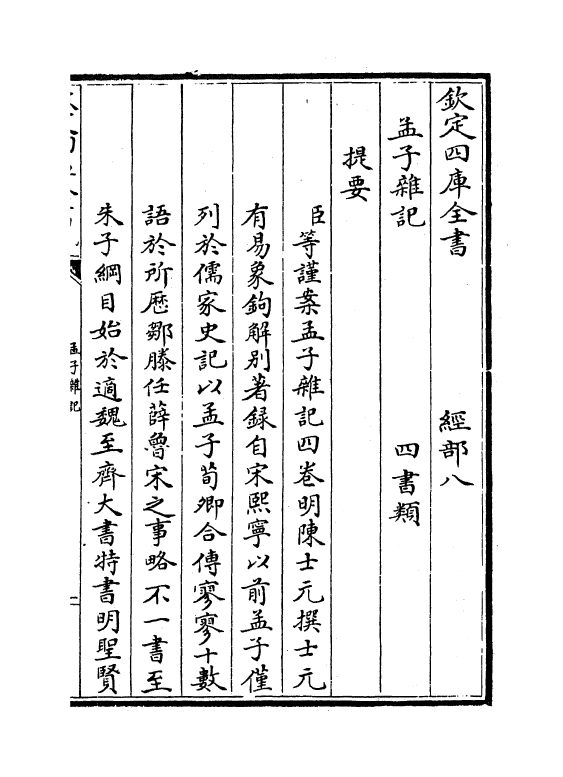 欽定四庫全書 經部八
孟子雜記 四書類
提要
臣等謹案孟子雜記四卷明陳士元撰士元
有易象鉤解别著錄自宋熙寧以前孟子僅
列於儒家史記以孟子荀卿合傳寥寥十數
語於所歴鄒滕任薛魯宋之事略不一書至
朱子綱目始於適魏至齊大書特書明聖賢
孟子雜記